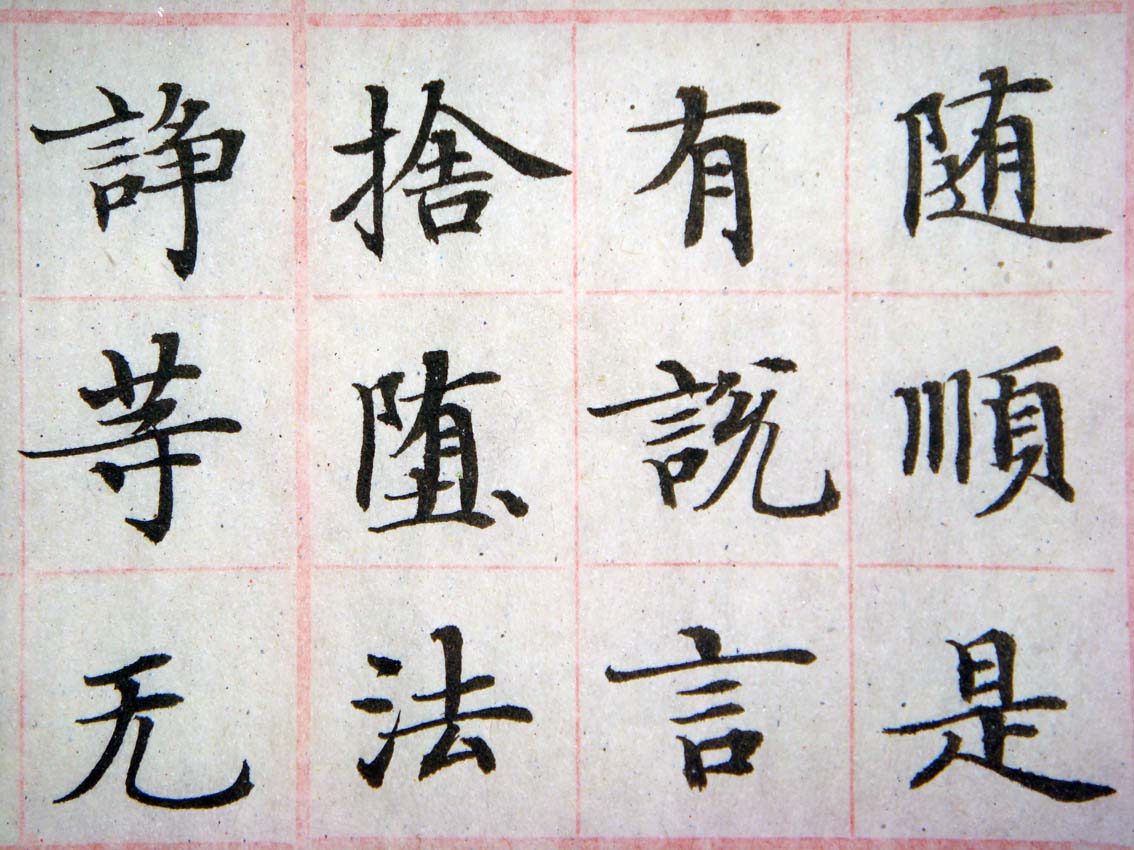 随順是
有說言
捨堕法
諍等无